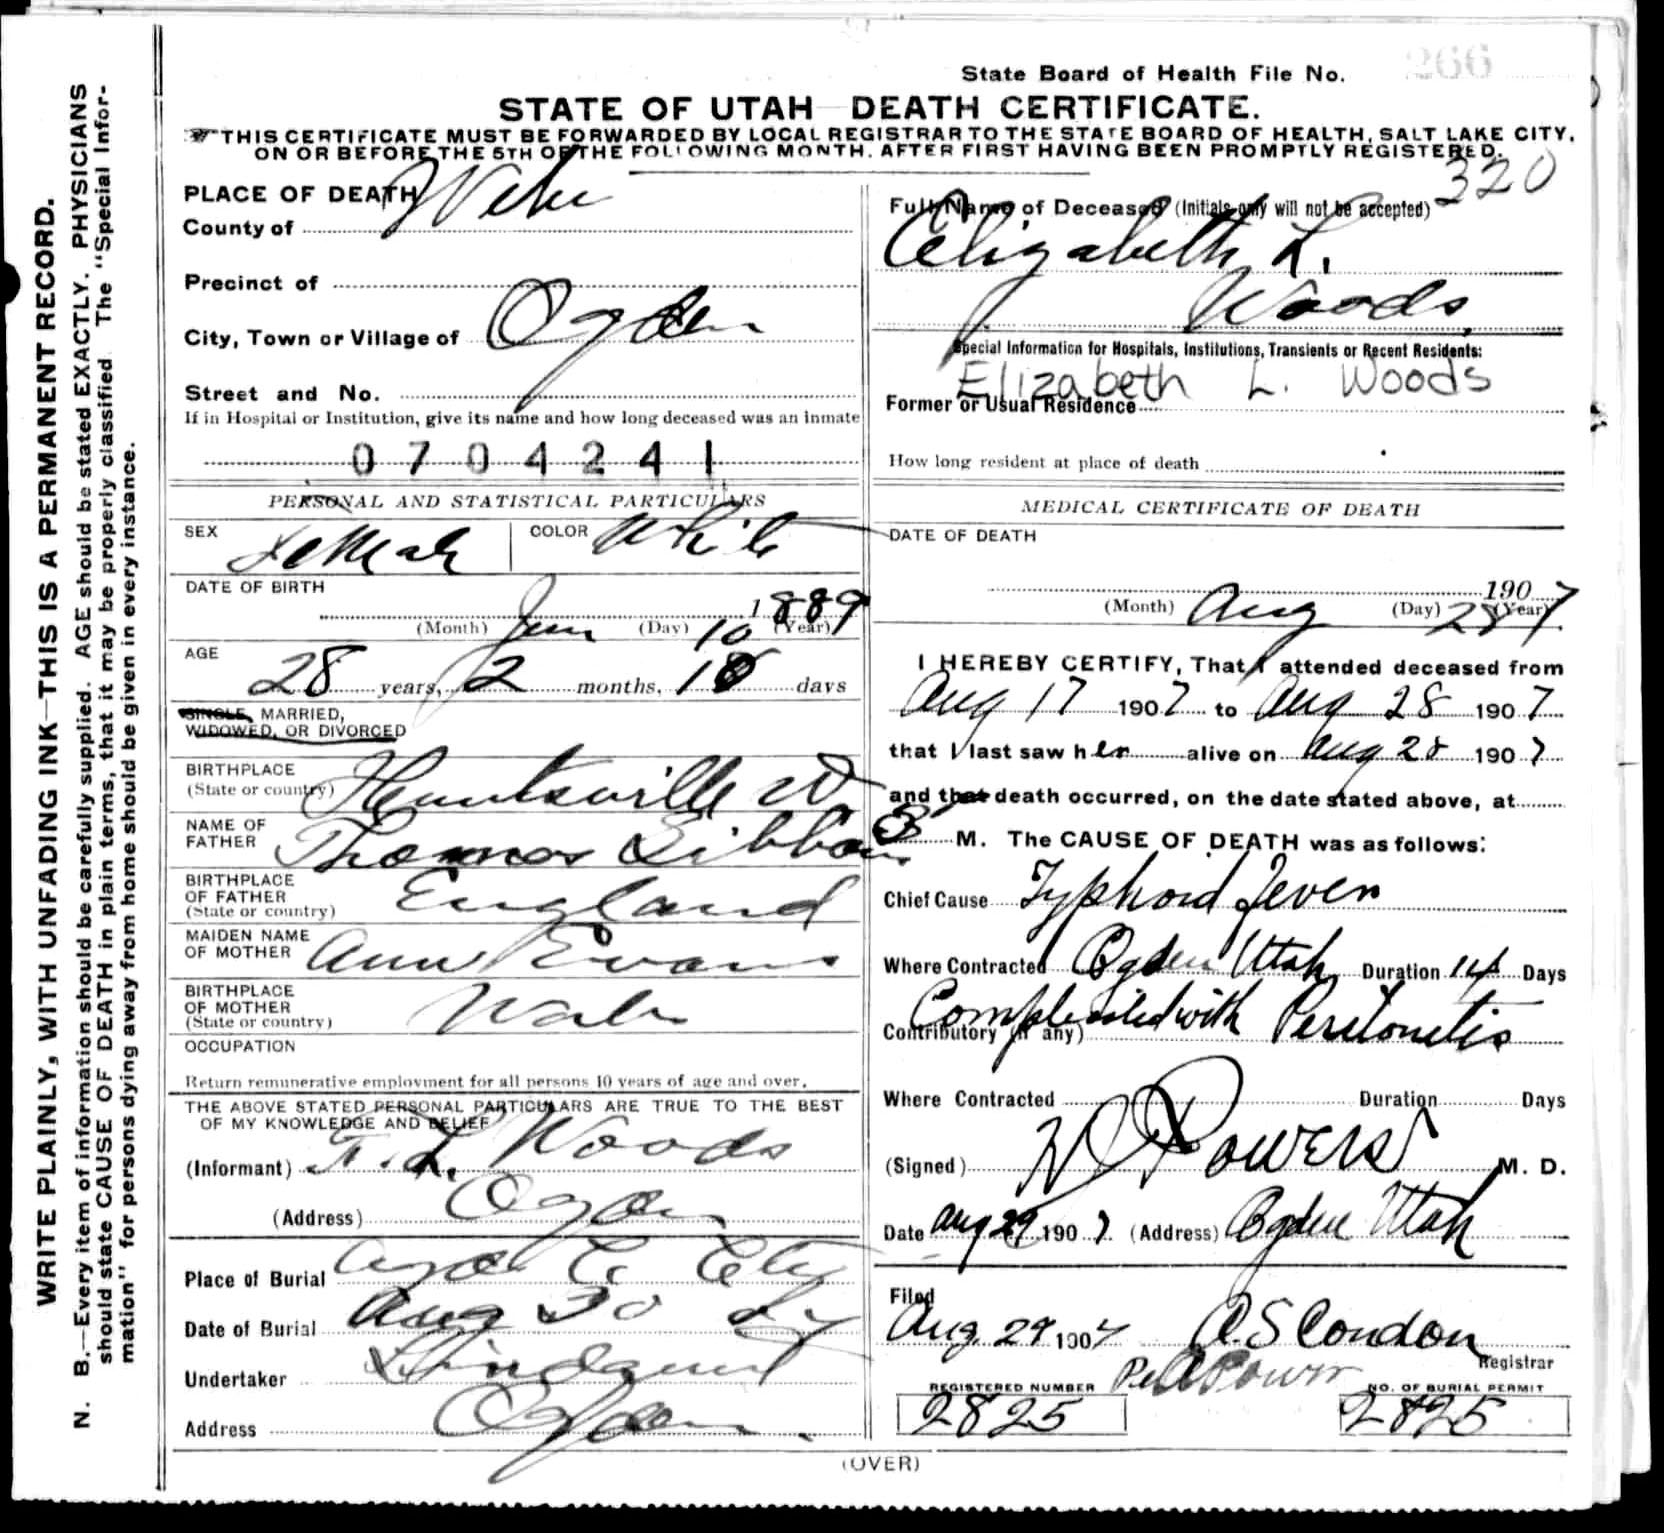 State Board of Health File No. 266
STATE OF UTAH—DEATH CERTIFICATE.
THIS CERTIFICATE MUST BE FORWARDED BY LOCAL REGISTRAR TO THE STATE BOARD OF HEALTH, SALT LAKE CITY,
ON OR BEFORE THE 5TH OF THE FOLLOWING MONTH, AFTER FIRST HAVING BEEN PROMPTLY REGISTERED.
320
WRITE PLAINLY, WITH UNFADING INK—THIS IS A PERMANENT RECORD.
N. B.—Every item of information should be carefully supplied. AGE should be stated EXACTLY. PHYSICIANS
should state CAUSE OF DEATH in plain terms, that it may be properly classified. The "Special Infor-
mation" for persons dying away from home should be given in every instance.
PLACE OF DEATH
County of Weber
Precinct of
City, Town or Village of Ogden
Street and No.
If in Hospital or Institution, give its name and how long deceased was an inmate
0704241
PERSONAL AND STATISTICAL PARTICULARS
SEX Female COLOR White
DATE OF BIRTH
1889
(Month) Jun (Day) 10 (Year)
AGE
28 years, 2 months, 18 days
SINGLE, MARRIED,
WIDOWED, OR DIVORCED
BIRTHPLACE
(State or country) Huntsville Ut
NAME OF
FATHER Thomas Gibbons
BIRTHPLACE
OF FATHER
(State or country) England
MAIDEN NAME
OF MOTHER Ann Evans
BIRTHPLACE
OF MOTHER
(State or country) Wales
OCCUPATION
Return remunerative employment for all persons 10 years of age and over.
THE ABOVE STATED PERSONAL PARTICULARS ARE TRUE TO THE BEST
OF MY KNOWLEDGE AND BELIEF
(Informant) F. L. Woods
(Address) Ogden
Place of Burial Ogden City
Date of Burial Aug 30 07
Undertaker Lindquist
Address Ogden
Full Name of Deceased (Initials only will not be accepted)
Elizabeth L.
Woods
Special Information for Hospitals, Institutions, Transients or Recent Residents:
Elizabeth L. Woods
Former or Usual Residence
How long resident at place of death
MEDICAL CERTIFICATE OF DEATH
DATE OF DEATH
1907
(Month) Aug (Day) 28 (Year)
I HEREBY CERTIFY, That I attended deceased from
Aug 17 1907 to Aug 28 1907
that I last saw her alive on Aug 28 1907
and that death occurred, on the date stated above, at
3 M. The CAUSE OF DEATH was as follows:
Chief Cause Typhoid Fever
Where Contracted Ogden Utah Duration 14 Days
Complicated with Peritonitis
Contributory (if any)
Where Contracted Duration Days
(Signed) Powers M. D.
Date Aug 29 1907 (Address) Ogden Utah
Filed
Aug. 29 1907 A. S. Condon
Registrar
Per
REGISTERED NUMBER
2825
NO. OF BURIAL PERMIT
2825
(OVER)